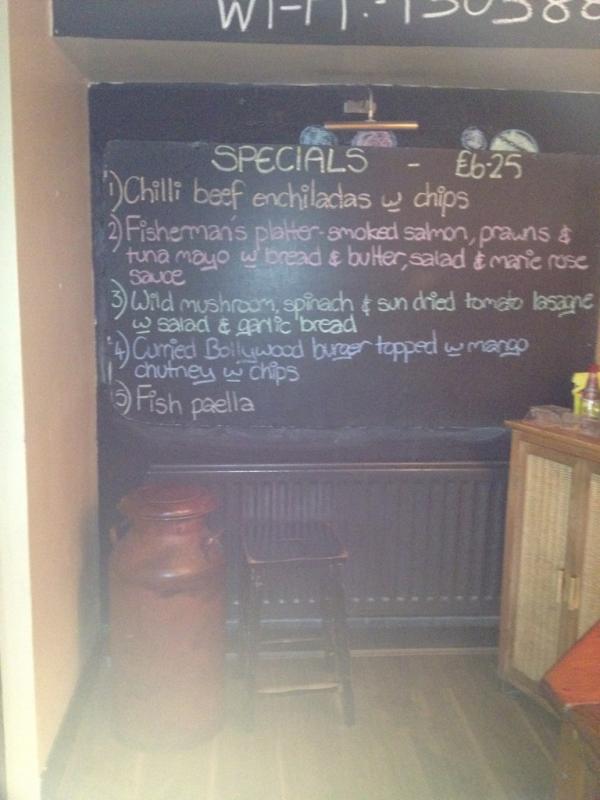 WI-FI:-
SPECIALS - £6.25
1) Chilli beef enchiladas w chips
2) Fisherman's platter-smoked salmon, prawns &
tuna mayo w bread & butter, salad & marie rose
sauce
3) Wild mushroom, spinach & sun dried tomato lasagne
w salad & garlic bread
4) Curried Bollywood burger topped w mango
chutney w chips
5) Fish paella